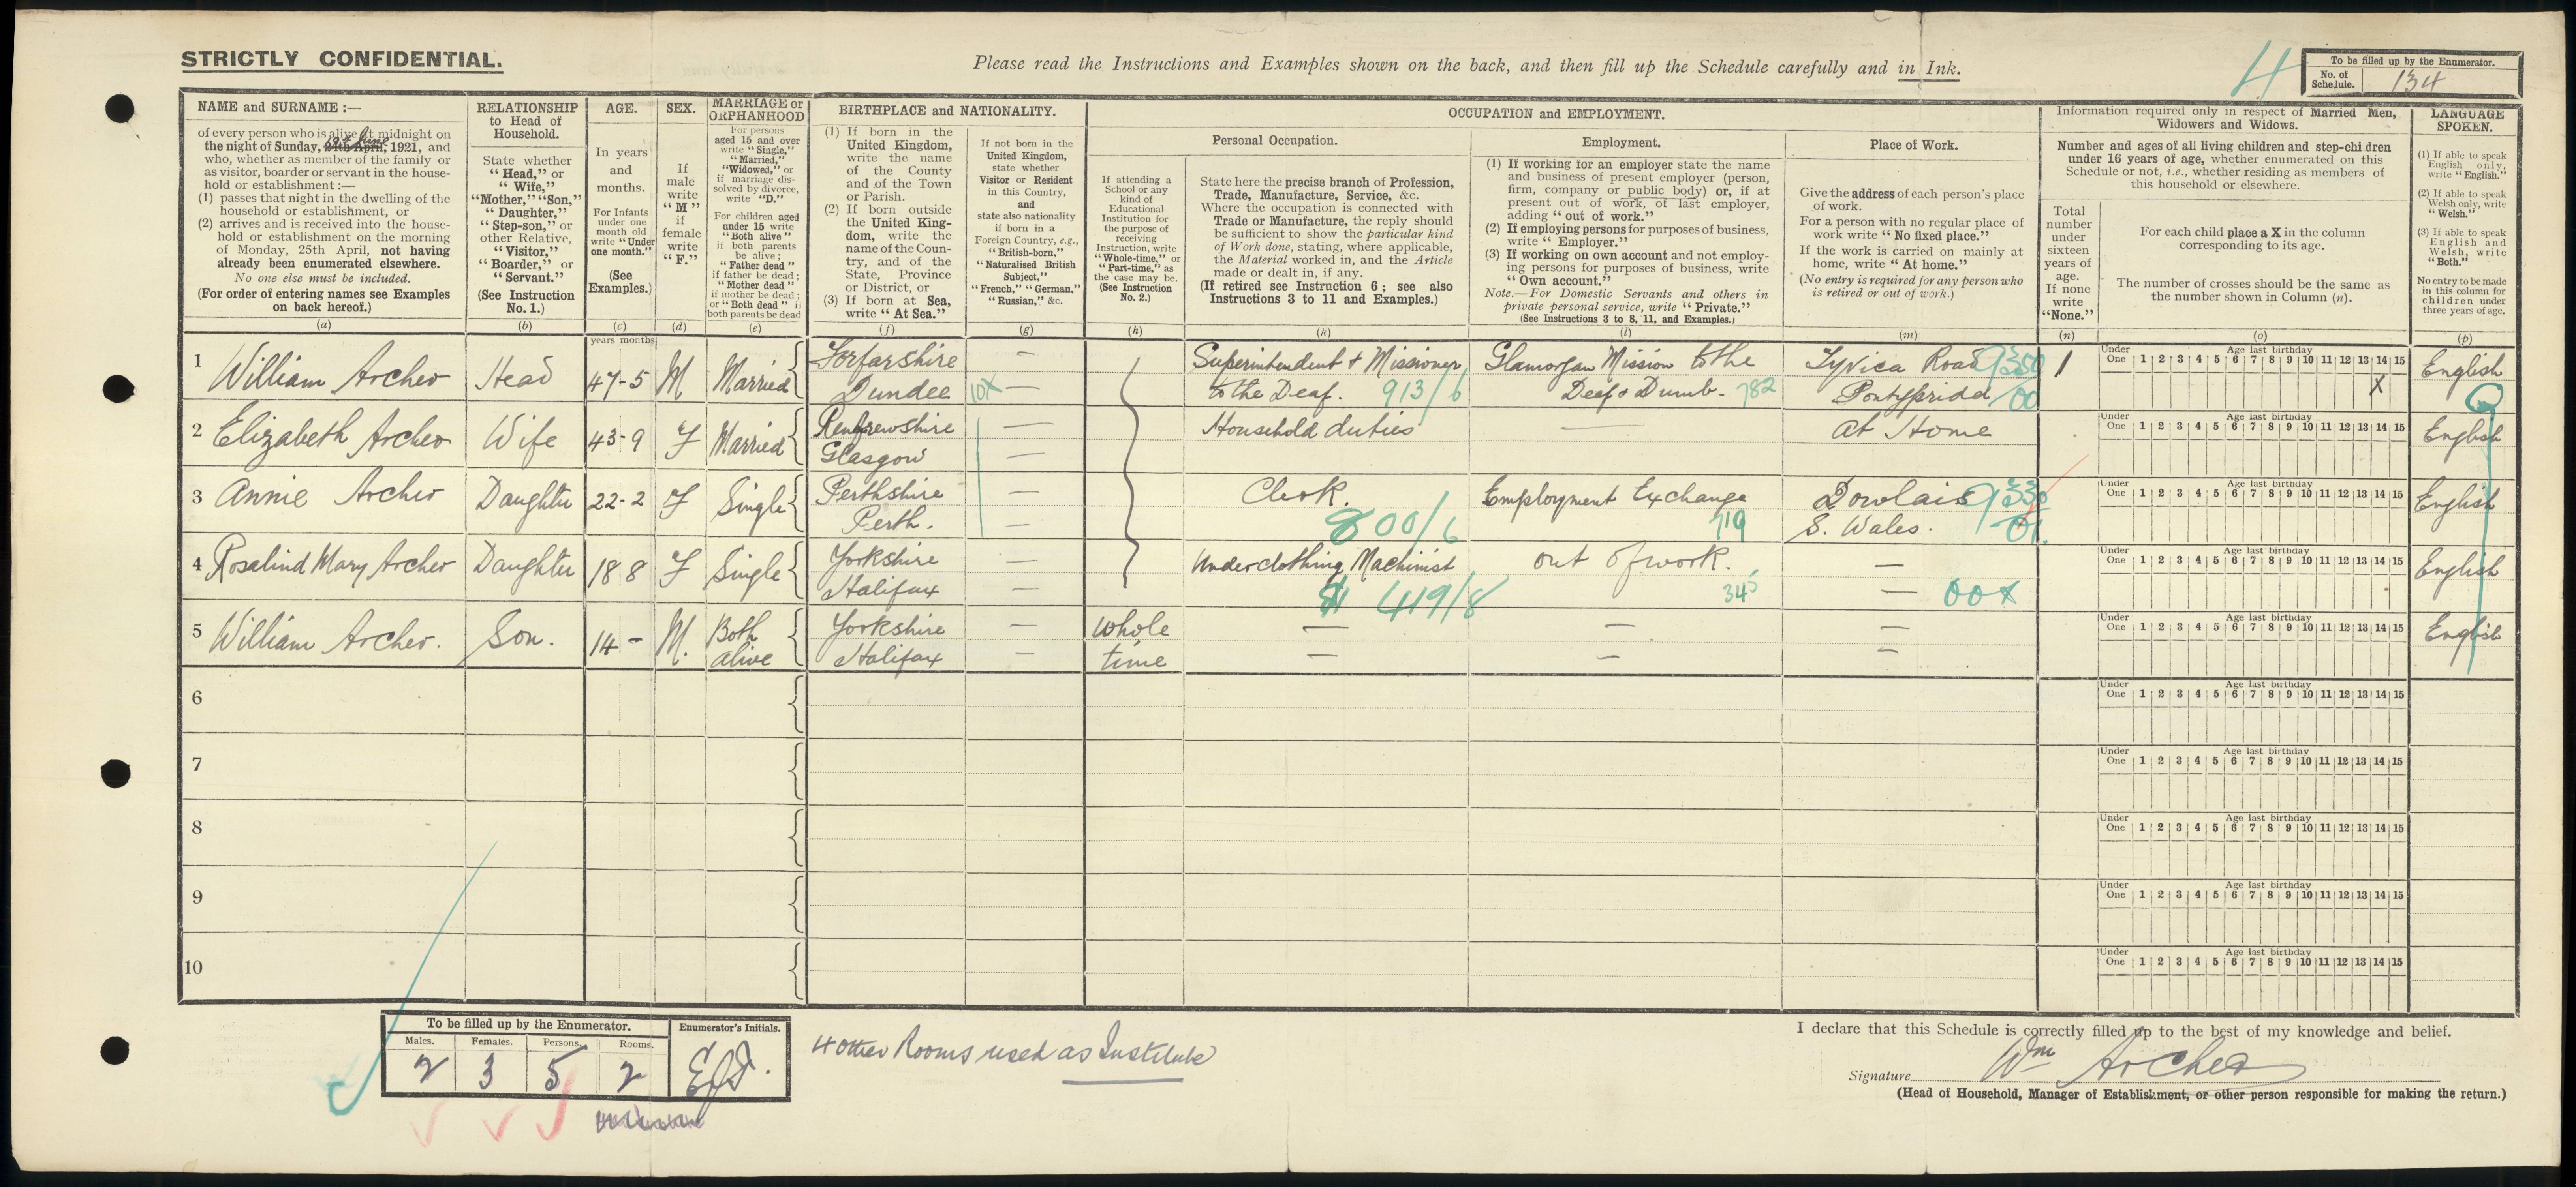 STRICTLY CONFIDENTIAL.
Please read the Instructions and Examples shown on the back, and then fill up the Schedule carefully and in Ink.
4
To be filled up by the Enumerator.
No. of Schedule. 134
NAME and SURNAME :—
of every person who is alive at midnight on
the night of Sunday, 24th April, 19th June 1921, and
who, whether as member of the family or
as visitor, boarder or servant in the house-
hold or establishment :—
(1) passes that night in the dwelling of the
household or establishment, or
(2) arrives and is received into the house-
hold or establishment on the morning
of Monday, 25th April, not having
already been enumerated elsewhere.
No one else must be included.
(For order of entering names see Examples
on back hereof.)
(a)
RELATIONSHIP
to Head of
Household.
State whether
"Head," or
"Wife,"
"Mother," "Son,"
"Daughter,"
"Step-son," or
other Relative,
"Visitor,"
"Boarder," or
"Servant."
(See Instruction
No. 1.)
(b)
AGE.
In years
and
months.
For Infants
under one
month old
write "Under
one month."
(See
Examples.)
(c)
years months
SEX.
If
male
write
"M"
if
female
write
"F."
(d)
MARRIAGE or
ORPHANHOOD
For persons
aged 15 and over
write "Single,"
"Married,"
"Widowed," or
if marriage dis-
solved by divorce,
write "D."
For children aged
under 15 write
"Both alive"
if both parents
be alive;
"Father dead"
if father be dead;
"Mother dead"
if mother be dead;
or "Both dead" if
both parents be dead
(e)
BIRTHPLACE and NATIONALITY.
(1) If born in the
United Kingdom,
write the name
of the County
and of the Town
or Parish.
(2) If born outside
the United King-
dom, write the
name of the Coun-
try, and of the
State, Province
or District, or
(3) If born at Sea,
write "At Sea."
(f)
If not born in the
United Kingdom,
state whether
Visitor or Resident
in this Country,
and
state also nationality
if born in a
Foreign Country, e.g.,
"British-born,"
"Naturalised British
Subject,"
"French," "German,"
"Russian," &c.
(g)
OCCUPATION and EMPLOYMENT.
If attending a
School or any
kind of
Educational
Institution for
the purpose of
receiving
Instruction, write
"Whole-time," or
"Part-time," as
the case may be.
(See Instruction
No. 2.)
(h)
Personal Occupation.
State here the precise branch of Profession,
Trade, Manufacture, Service, &c.
Where the occupation is connected with
Trade or Manufacture, the reply should
be sufficient to show the particular kind
of Work done, stating, where applicable,
the Material worked in, and the Article
made or dealt in, if any.
(If retired see Instruction 6; see also
Instructions 3 to 11 and Examples.)
(k)
Employment.
(1) If working for an employer state the name
and business of present employer (person,
firm, company or public body) or, if at
present out of work, of last employer,
adding "out of work."
(2) If employing persons for purposes of business,
write "Employer."
(3) If working on own account and not employ-
ing persons for purposes of business, write
"Own account."
Note.—For Domestic Servants and others in
private personal service, write "Private."
(See Instructions 3 to 8, 11, and Examples.)
(l)
Place of Work.
Give the address of each person's place
of work.
For a person with no regular place of
work write "No fixed place."
If the work is carried on mainly at
home, write "At home."
(No entry is required for any person who
is retired or out of work.)
(m)
Information required only in respect of Married Men,
Widowers and Widows.
Number and ages of all living children and step-chi dren
under 16 years of age, whether enumerated on this
Schedule or not, i.e., whether residing as members of
this household or elsewhere.
Total
number
under
sixteen
years of
age.
If none
write
"None."
(n)
For each child place a X in the column
corresponding to its age.
The number of crosses should be the same as
the number shown in Column (n).
(o)
LANGUAGE
SPOKEN.
(1) If able to speak
English only,
write "English."
(2) If able to speak
Welsh only, write
"Welsh."
(3) If able to speak
English and
Welsh, write
"Both."
No entry to be made
in this column for
children under
three years of age.
(p)
1 William Archer Head 47-5 M Married Forfarshire — Superintendent & Missioner Glamorgan Mission to the Tyvica Road 9350 1 English
Dundee 10X — to the Deaf. 913/6 Deaf & Dumb. 782 Pontypridd 00 X
2 Elizabeth Archer Wife 43-9 F Married Renfrewshire — Household duties — At Home English
Glasgow —
3 Annie Archer Daughter 22-2 F Single Perthshire — Clerk. Employment Exchange Dowlais English
Perth. — 800/6 719 S. Wales.
4 Rosalind Mary Archer Daughter 18 8 F Single Yorkshire — Underclothing Machinist out of work. — English
Halifax — 419/8 345 — 00X
5 William Archer. Son. 14 - M. Both Yorkshire — whole — — — English
alive Halifax — time — — —
6
7
8
9
10
Under One 1 2 3 4 5 6 7 8 9 10 11 12 13 14 15
Age last birthday
To be filled up by the Enumerator.
Males. Females. Persons. Rooms.
2 3 5 2
Enumerator's Initials.
4 other Rooms used as Institute
I declare that this Schedule is correctly filled up to the best of my knowledge and belief.
Signature Wm Archer
(Head of Household, Manager of Establishment, or other person responsible for making the return.)